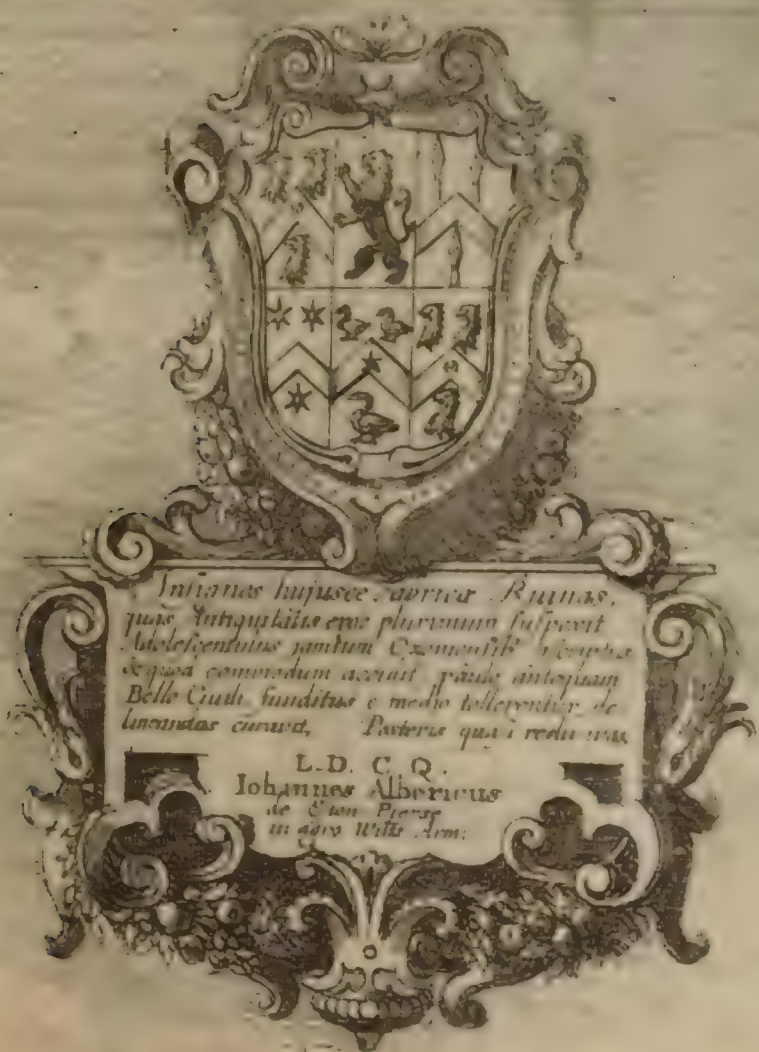 Insianes hujusce Fabricæ Ruinas,
quas Antiquitatis eros plurimum suspexit
Adolescentulus jamdum Oxoniensib⁹ ascriptus
& quod commodum accidit, paulo antequam
Bello Civili funditus e medio tollerentur, de
lineandas curavit, Posteris quasi redivivas,
L. D. C. Q.
Iohannes Albericus
de Eston Pierse
in agro Wilts Arm: